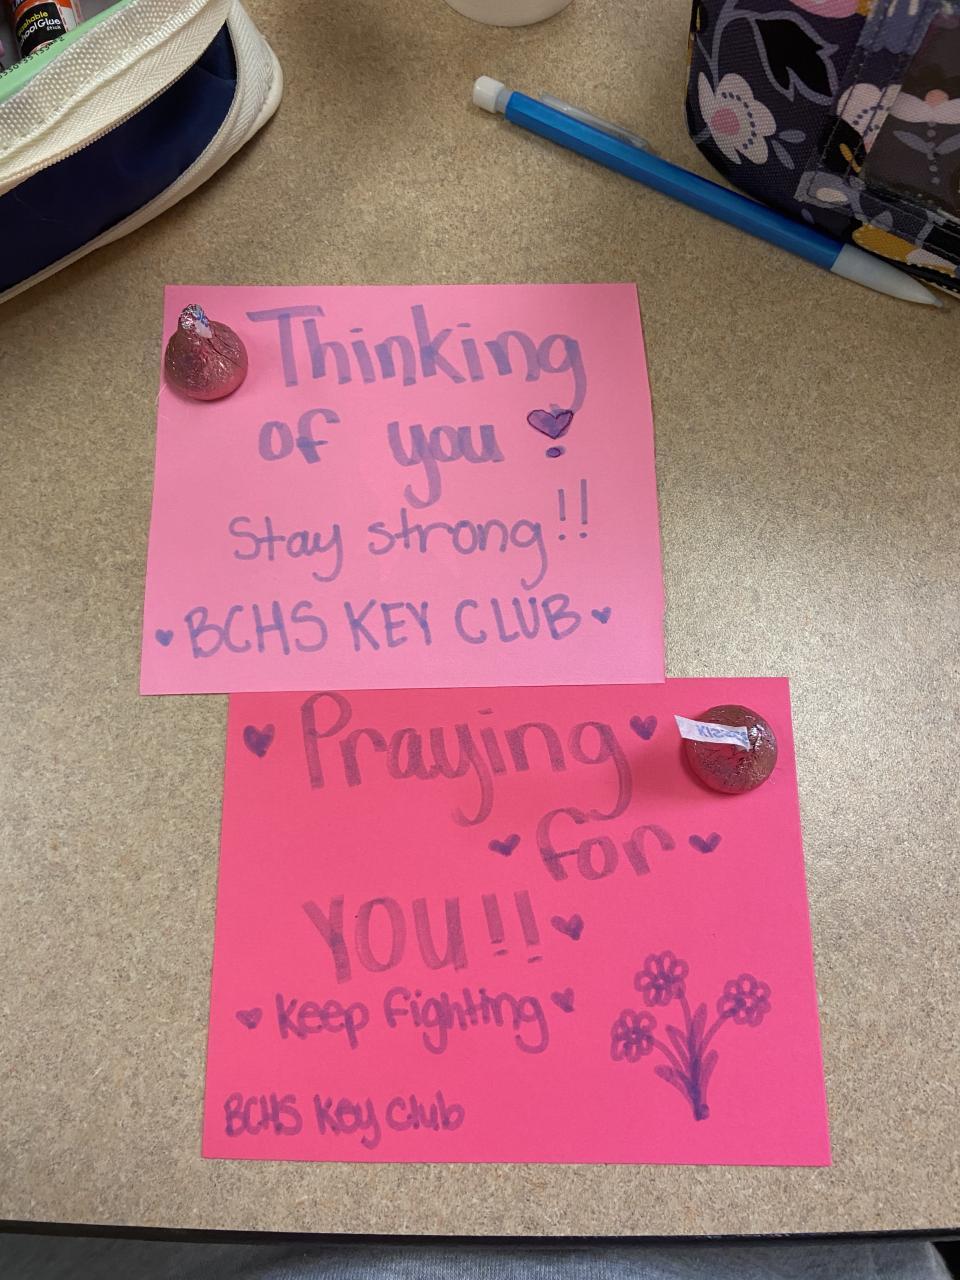 washable
School Glue
Stick
Thinking
of you
Stay strong!!
BCHS KEY CLUB
KISSES
Praying
for
YOU!!
Keep fighting
BCHS Key Club